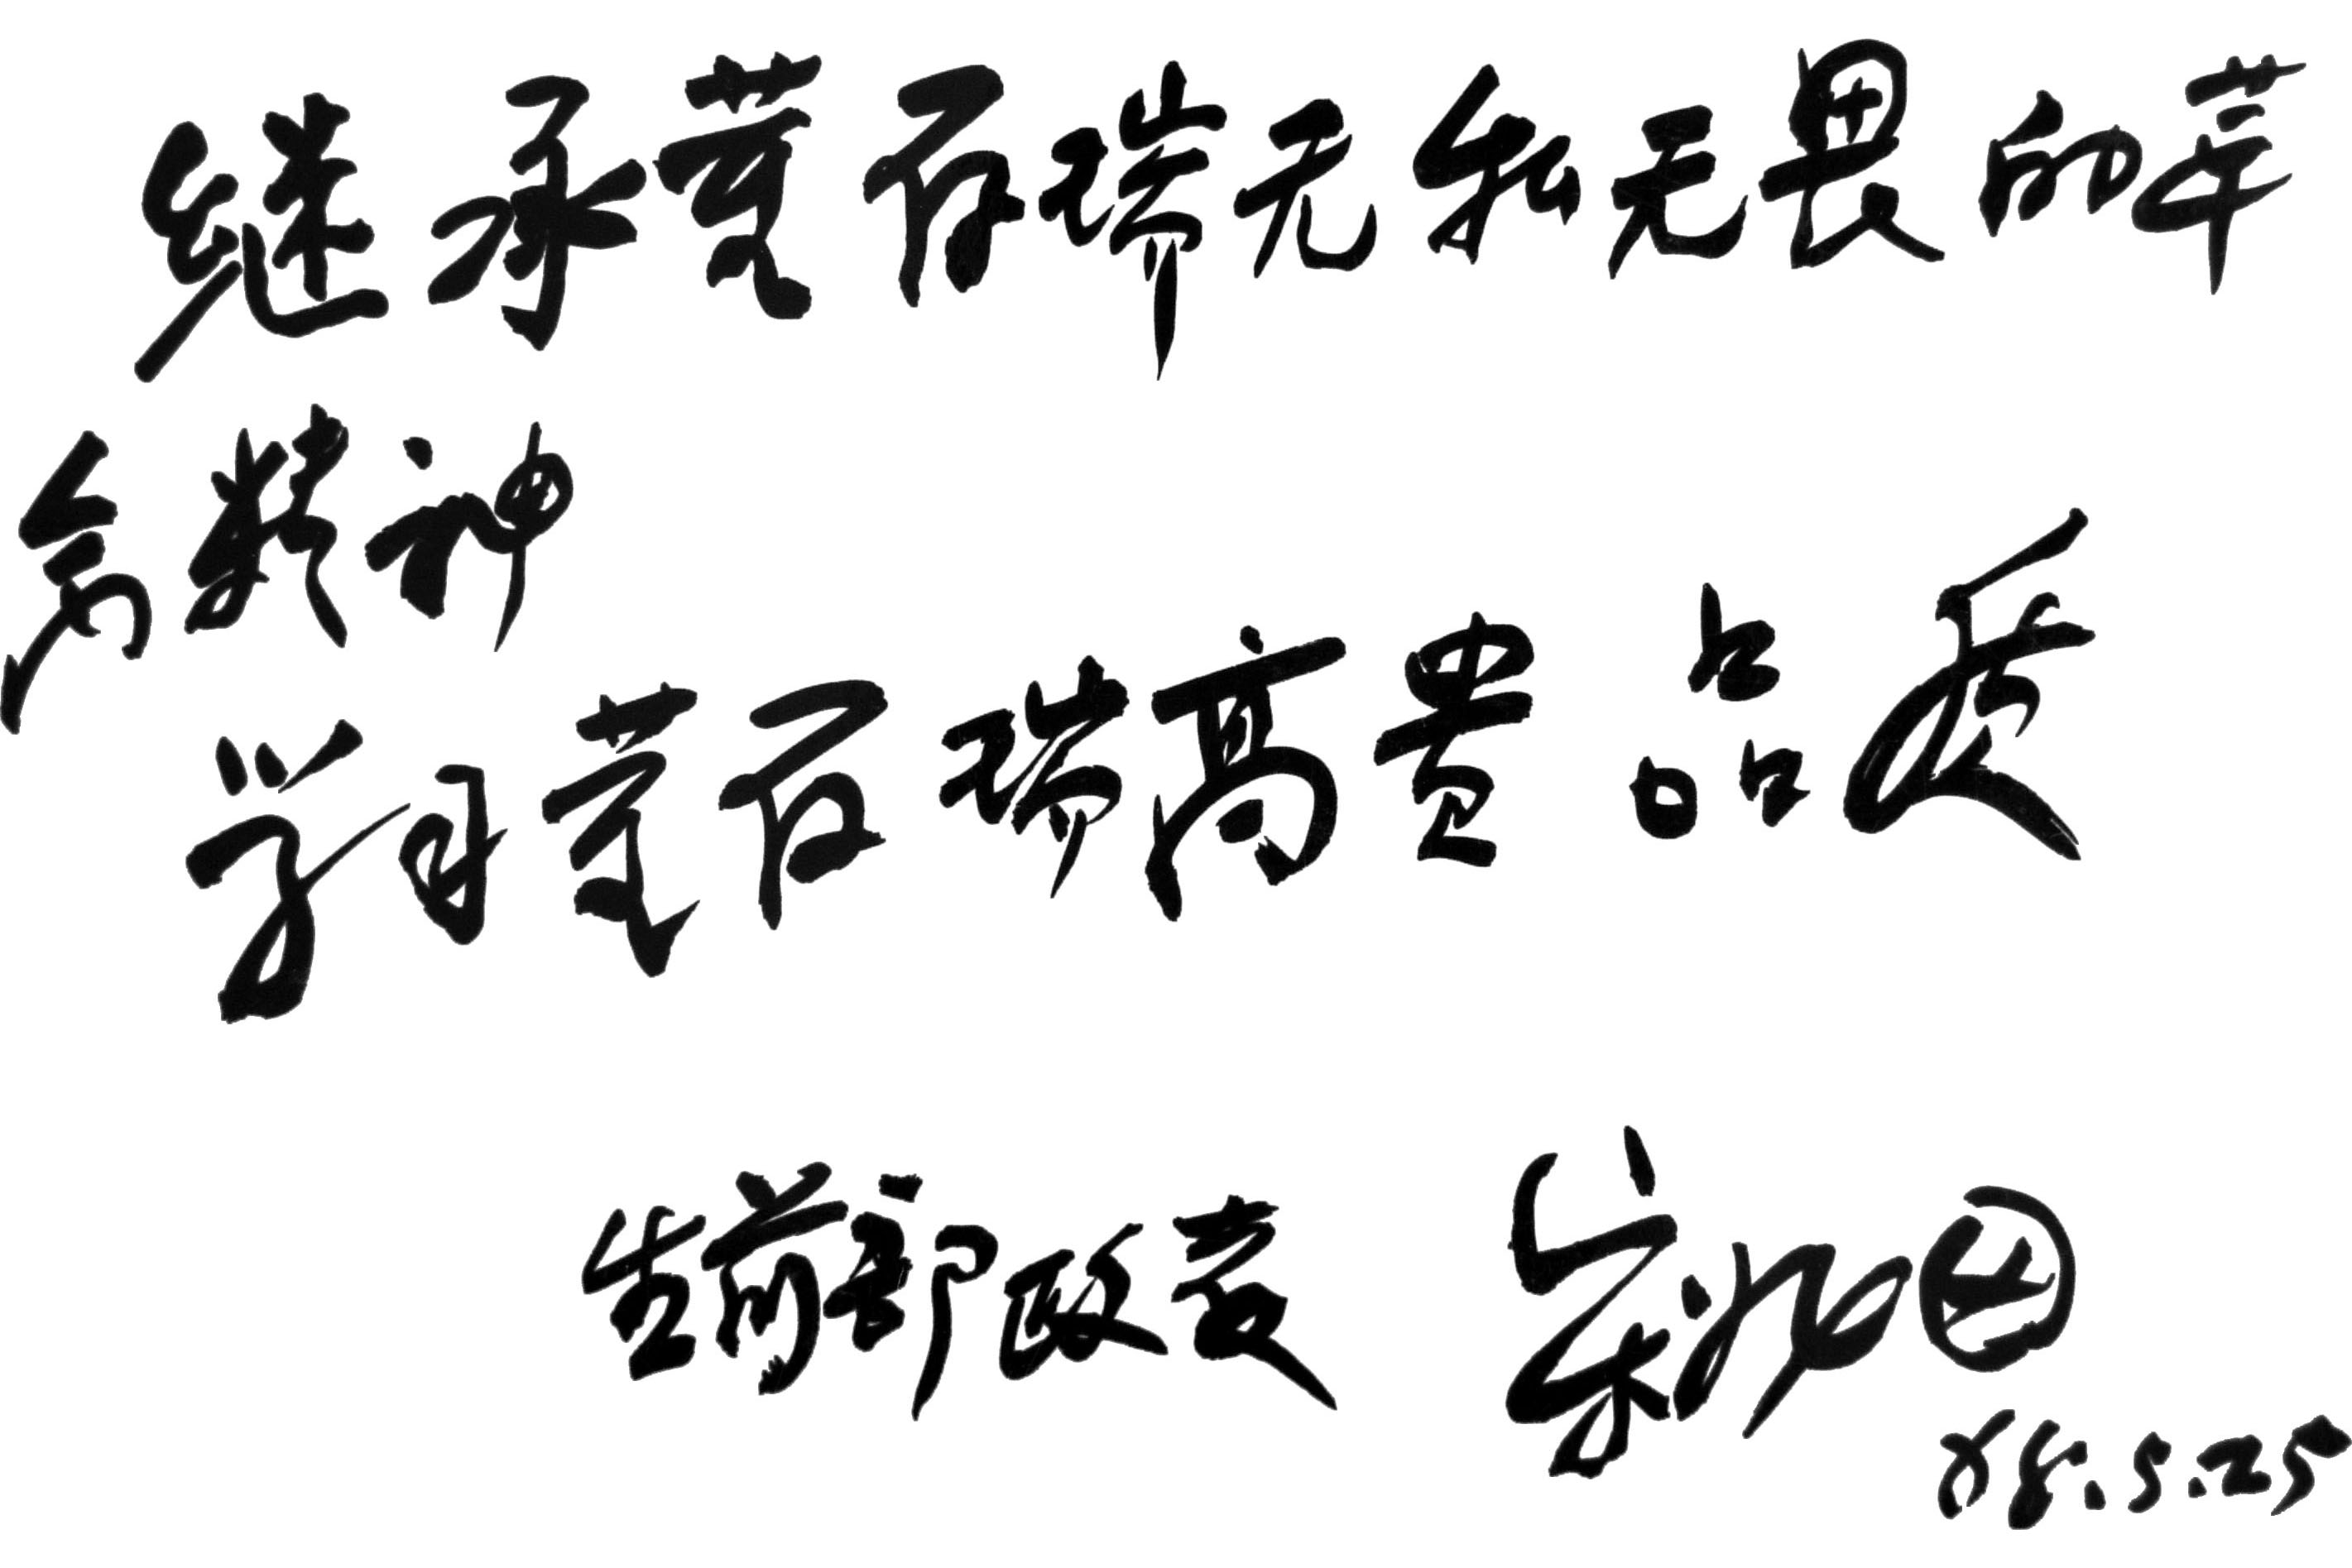 继承董存瑞无私无畏的革
命精神
学习董存瑞高贵品质
生前部政委 宋兆田
88.5.25